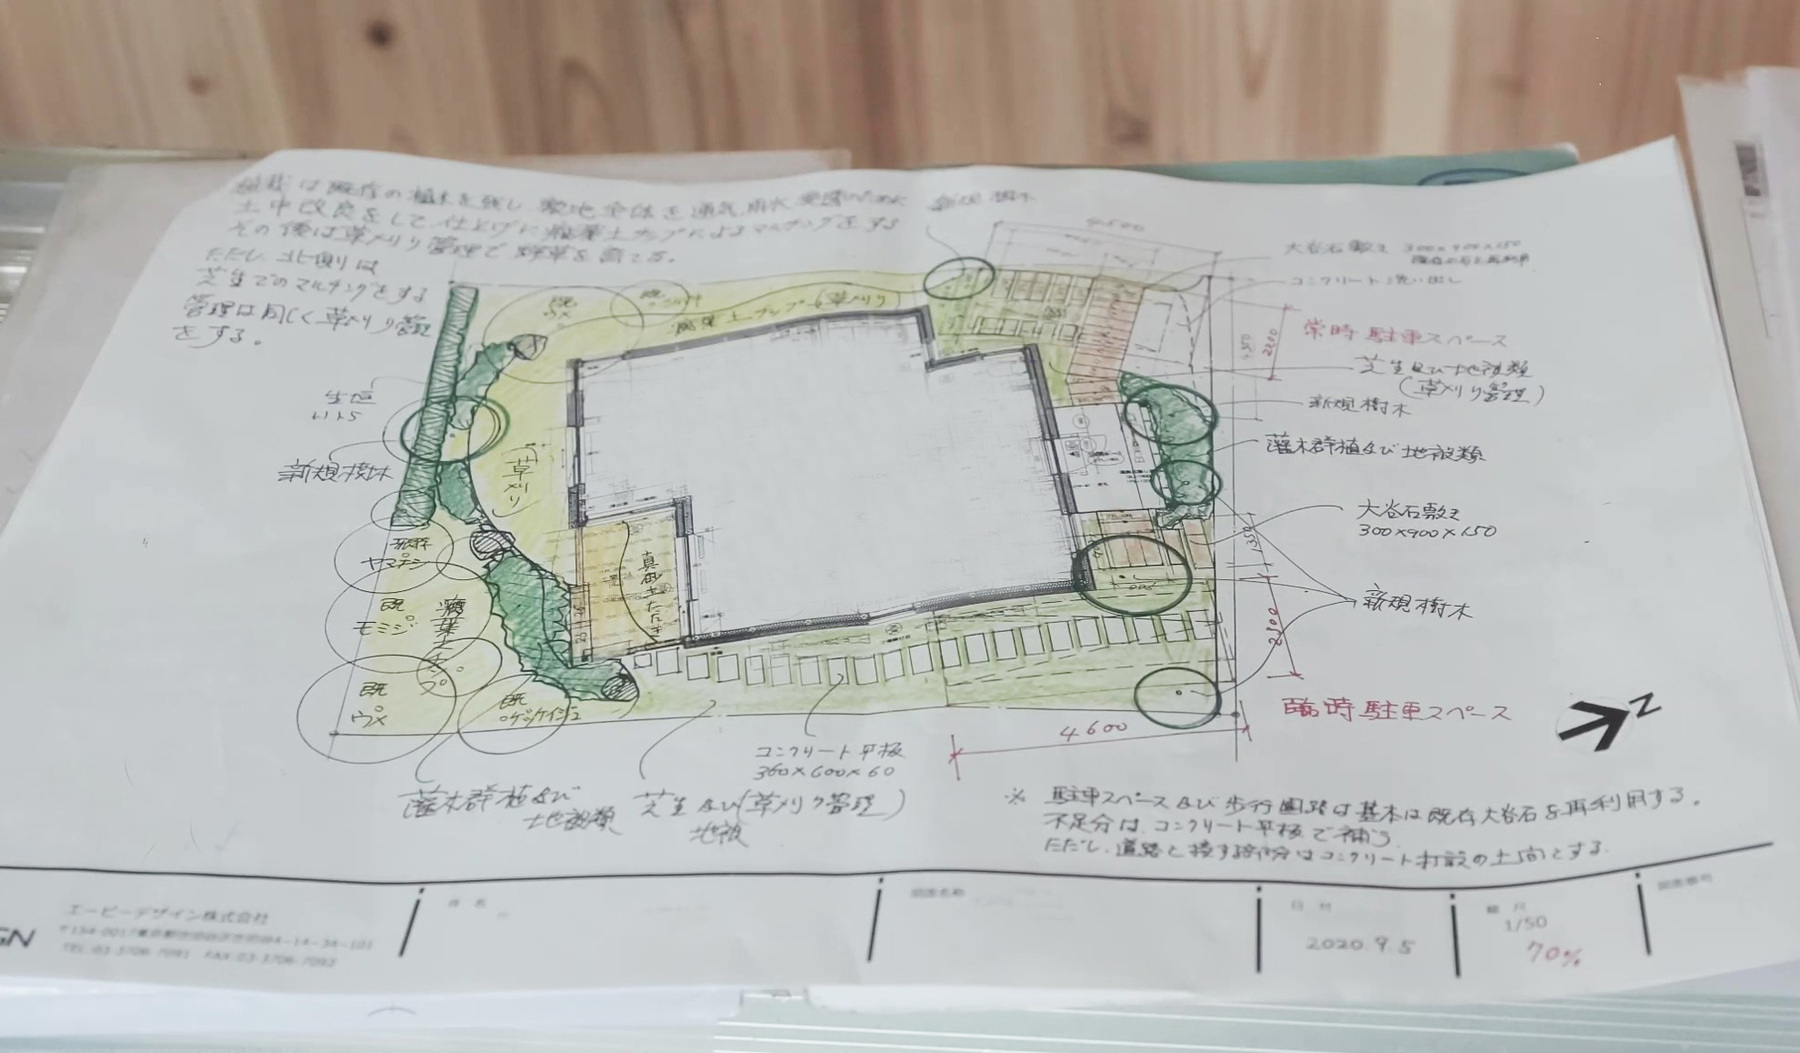 植栽は既存の植木を残し 敷地全体を通気雨水
土中改良をして仕上げに腐葉土チップによるマルチングをする
その後は草刈り管理で野草を育てる。
ただし、北側は
芝生でのマルチングをする
管理は同じく草刈り管理
をする。
新規樹木
4500
大谷石敷き 300×900×150
コンクリート洗い出し
常時 駐車スペース
2200
芝生及び地被類
(草刈り管理)
新規樹木
灌木群植及び地被類
大谷石敷き
300×900×150
1350
新規樹木
2500
臨時 駐車スペース
4600
N
生垣
新規樹木
既
ウメ
既
(草刈り)
(草刈り)
真砂土たたき
既存
ヤマナシ
既
モミジ
腐葉土チップ
既
ウメ
既
ゲッケイジュ
コンクリート平板
360×600×60
灌木群植及び
地被類
芝生及び(草刈り管理)
地被
※ 駐車スペース及び歩行園路は基本は既存大谷石を再利用する。
不足分は、コンクリート平板で補う
ただし、道路と接する部分はコンクリート打設の土間とする。
GN
エーピーデザイン株式会社
〒154-0017東京都世田谷区世田谷4-14-34-101
TEL:03-3706-7091 FAX:03-3706-7092
件 名
図面名称
日 付
2020.9.5
縮 尺
1/50
70%
図面番号